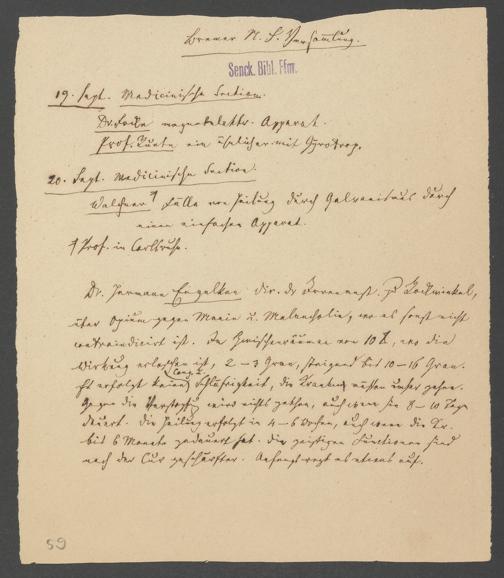 Bremer N. F. Versammlung.
Senck. Bibl. Ffm.
19. Sept. Medicinische Section.
Dr. Focke magnetelektr. Apparat.
Prof. ein ähnlicher mit
20. Sept. Medicinische Section.
Walchner ¶ Fälle von Heilung durch Galvanismus durch
einen einfachen Apparat.
¶ Prof. in Carlsruhe.
Dr. Hermann Engelken dir. der Irrenanst. zu Rockwinkel,
über Opium gegen Manie u. Melancholie, wo es sonst nicht
contraindicirt ist. In Zwischenräumen von 10 wo die
Wirkung erloschen ist, 2 – 3 Gran, steigend bis 10 – 16 Gran.
Es erfolgt keine Schläfrigkeit, die Kranken müssen umher gehen.
Gegen die Verstopfg wird nichts gethan, auch wenn sie 8 – 10 Tage
dauert. Die Heilung erfolgt in 4 – 6 Wochen, auch wenn die Kr.
bis 6 Monate gedauert hat. Die geistigen Functionen sind
nach der Cur geschärfter. Anfangs regt es etwas auf.
59